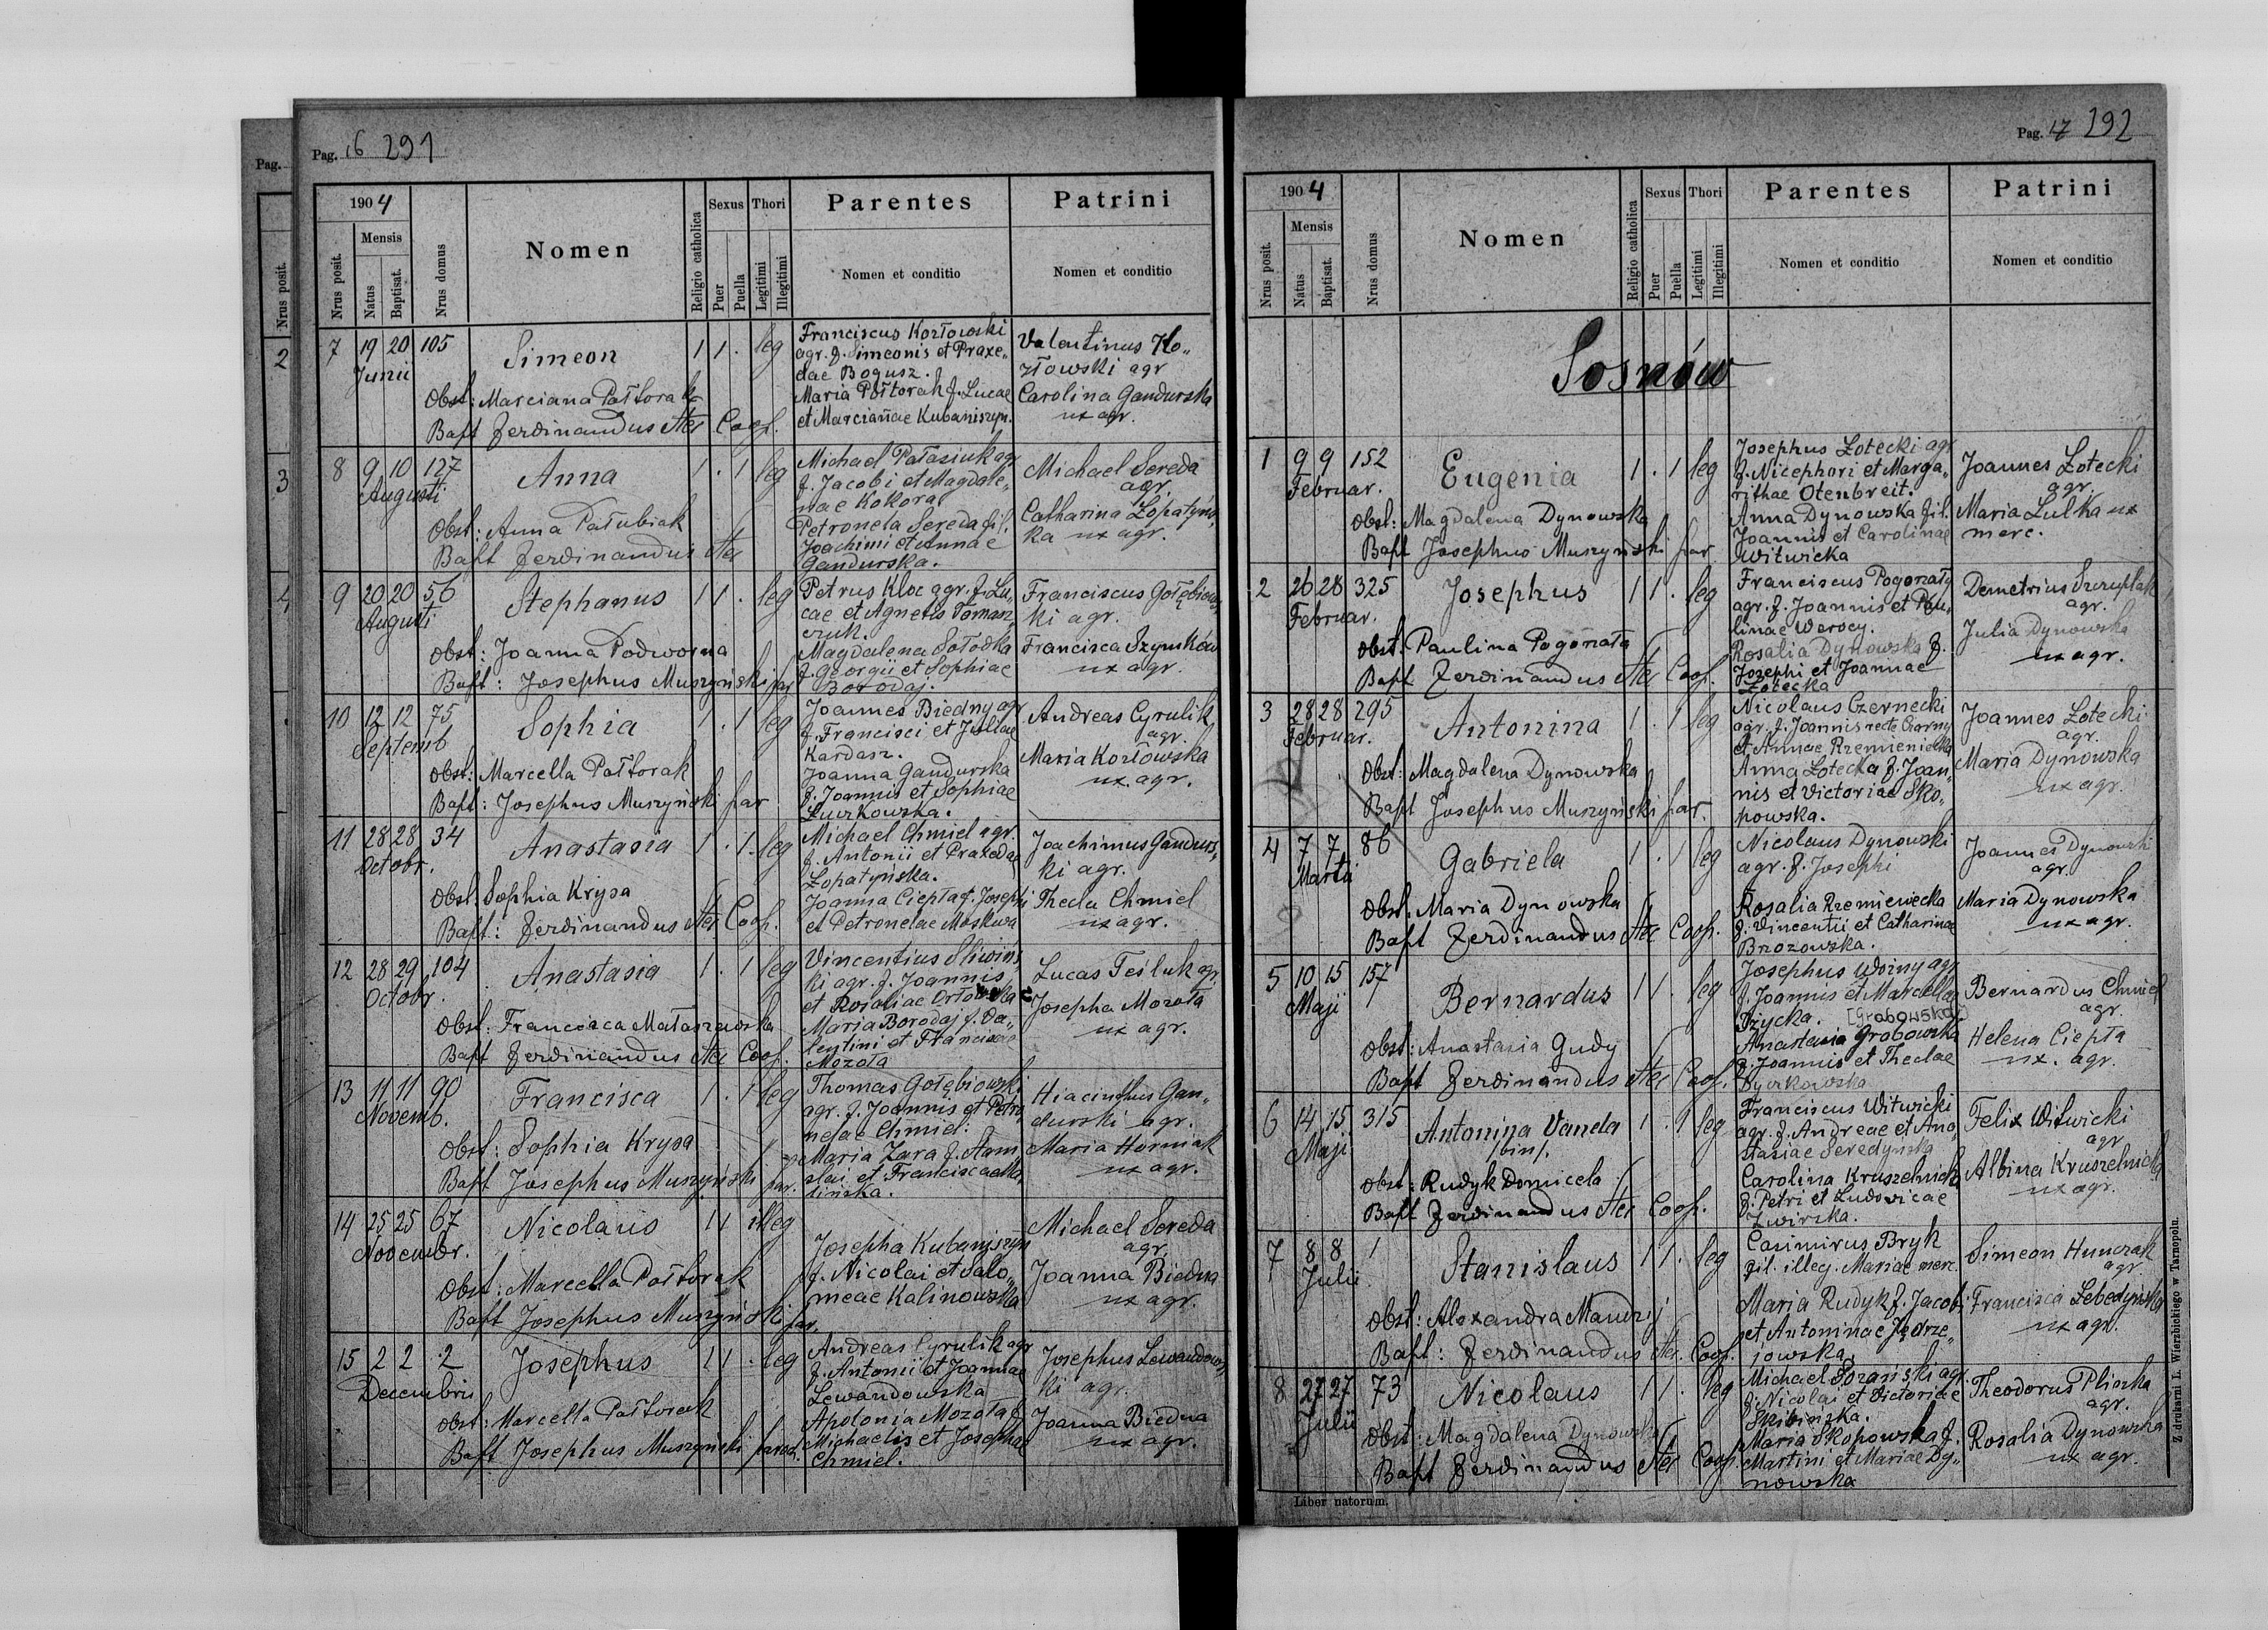 Pag.
Nrus posit.
2
3
4
Pag. 16 291
1904
Nrus posit.
Mensis
Natus
Baptisat.
Nrus domus
Nomen
Religio catholica
Sexus
Puer
Puella
Thori
Legitimi
Illegitimi
Parentes
Nomen et conditio
Patrini
Nomen et conditio
7 19 20 105 Simeon 1 1 . leg
Junii
Obst: Marciana Połtorak
Bapt Ferdinandus Ster Coop.
Franciscus Kozłowski
agr. f. Simeonis et Praxe„
dae Bogusz.
Maria Połtorak f. Lucae
et Marcianae Kubaniszyn.
Valentinus Ko„
złowski agr
Carolina Gandurska
ux agr.
8 9 10 127 Anna 1 . 1 leg
Augusti
Obst: Anna Pałubiak
Bapt Ferdinandus Ster
Michael Patasiuk agr
f. Jacobi et Magdale„
nae Kokora
Petronela Sereda fil.
Joachimi et Annae
Gandurska.
Michael Sereda
agr.
Catharina Łopatyńs„
ka ux agr.
9 20 20 56 Stephanus 1 1 . leg
Augusti
Obst: Joanna Podworna
Bapt: Josephus Muszyński par
Petrus Kloc agr. f. Lu„
cae et Agnetis Tomasz„
czuk.
Magdalena Sołodka
f. Georgii et Sophiae
Borodaj.
Franciscus Gołębiows„
ki agr.
Francisca Szymków
ux agr.
10 12 12 75 Sophia 1 . 1 leg
Septemb
Obst: Marcella Połtorak
Bapt: Josephus Muszyński par
Joannes Biedny agr
f. Francisci et Juliae
Kardasz.
Joanna Gandurska
f. Joannis et Sophiae
Żurkowska.
Andreas Cyrulik,
agr.
Maria Kozłowska
ux. agr.
11 28 28 34 Anastasia 1 . 1 . leg
Octobr.
Obst: Sophia Krysa
Bapt: Ferdinandus Ster Coop.
Michael Chmiel agr.
f. Antonii et Praxedae
Łopatyńska.
Joanna Ciepła f. Josephi
et Petronelae Moskwa
Joachimus Gandurs„
ki agr.
Thecla Chmiel
ux agr.
12 28 29 104 Anastasia 1 . 1 leg
Octobr.
Obst: Francisca Mataszewska
Bapt Ferdinandus Ster Coop.
Vincentius Sliwińs„
ki agr. f. Joannis
et Rosaliae Orłowska
Maria Borodaj f. Va„
lentini et Franciscae
Mozoła
Lucas Tesluk agr.
Josepha Mozoła
ux agr.
13 11 11 90 Francisca 1 . 1 leg
Novemb.
Obst: Sophia Krysa
Bapt Josephus Muszyński par.
Thomas Gołębiowski
agr. f. Joannis et Petro
nelae Chmiel.
Maria Zara f. Stani„
slai et Franciscae Ma„
lińska.
Hiacinthus Gan„
durski agr.
Maria Horniak
ux agr.
14 25 25 67 Nicolaus 1 1 illeg
Novembr.
Obst: Marcella Połtorak
Bapt Josephus Muszyński par.
Josepha Kubaniszyn
f. Nicolai et Salo„
meae Kalinowska
Michael Sereda
agr.
Joanna Biedna
ux agr.
15 2 2 2 Josephus 1 1 . leg
Decembris
Obst: Marcella Połtorak
Bapt Josephus Muszyński paroch.
Andreas Cyrulik agr
f. Antonii et Joannae
Lewandowska
Apolonia Mozoła f.
Michaelis et Josephae
Chmiel.
Josephus Lewandows„
ki agr.
Joanna Biedna
ux agr.
Pag. 17 292
1904
Nrus posit.
Mensis
Natus
Baptisat.
Nrus domus
Nomen
Religio catholica
Sexus
Puer
Puella
Thori
Legitimi
Illegitimi
Parentes
Nomen et conditio
Patrini
Nomen et conditio
Sosnów
1 9 9 152 Eugenia 1 . 1 leg
Februar.
Obst: Magdalena Dynowska
Bapt Josephus Muszyński par
Josephus Łotecki agr
f. Nicephori et Marga„
rithae Otenbreit.
Anna Dynowska fil.
Joannis et Carolinae
Witwicka
Joannes Łotecki
agr.
Maria Lulka ux
merc.
2 26 28 325 Josephus 1 1 . leg
Februar.
Obst: Paulina Pogonata
Bapt Ferdinandus Ster Coop.
Franciscus Pogonaty
agr. f. Joannis et Pau„
linae Werocy.
Rosalia Dynowska f.
Josephi et Joannae
Łotecka
Demetrius Szeruplak
agr.
Julia Dynowska
ux agr.
3 28 28 295 Antonina 1 . 1 leg
Februar.
Obst: Magdalena Dynowska
Bapt Josephus Muszyński par.
Nicolaus Czernecki
agr. f. Joannis recte Czorny
et Annae Rzemieniecka
Anna Łotecka f. Joan„
nis et Victoriae Sko„
powska.
Joannes Łotecki
agr.
Maria Dynowska
ux agr.
4 7 7 86 Gabriela 1 . 1 leg
Martii
Obst. Maria Dynowska
Bapt Ferdinandus Ster Coop.
Nicolaus Dynowski
agr. f. Josephi
Rosalia Rzemieniecka
f. Vincentii et Catharinae
Brzozowska.
Joannes Dynowski
agr.
Maria Dynowska
ux agr.
5 10 15 157 Bernardus 1 1 . leg
Maji
Obst: Anastasia Gudy
Bapt Ferdinandus Ster Coop.
Josephus Woźny agr
f. Joannis et Marcellae
Dżycka. [Grabowska]
Anastasia Grabowska
f. Joannis et Theclae
Bernardus Chmiel
agr.
Helena Ciepła
ux. agr.
6 14 15 315 Antonina Vanda 1 . 1 leg
Maji
/bin/.
Obst: Rudyk Domicela
Bapt Ferdinandus Ster Coop.
Franciscus Witwicki
agr. f. Andreae et Ana„
stasiae Seredyńska
Carolina Kruszelnicka
f. Petri et Ludovicae
Żwirska.
Felix Witwicki
agr
Albina Kruszelnicka
ux agr.
7 8 8 1 Stanislaus 1 1 . leg
Julii
Obst: Alexandra Mandzij
Bapt: Ferdinandus Ster. Coop.
Casimirus Bryk
fil. illeg. Mariae merc.
Maria Rudyk f. Jacobi
et Antoninae Jędrze„
jowska.
Simeon Hunczak
agr.
Francisca Lebedyńska
ux agr.
8 27 27 73 Nicolaus 1 1 . leg
Julii
Obst: Magdalena Dynowska
Bapt Ferdinandus Ster Coop.
Michael Sozański agr.
f. Nicolai et Victoriae
Skibińska.
Maria Skopowska f.
Martini et Mariae Dy„
nowska
Theodorus Pliszka
agr.
Rosalia Dynowska
ux agr.
Liber natorum.
Z drukarni L. Wierzbickiego w Tarnopolu.